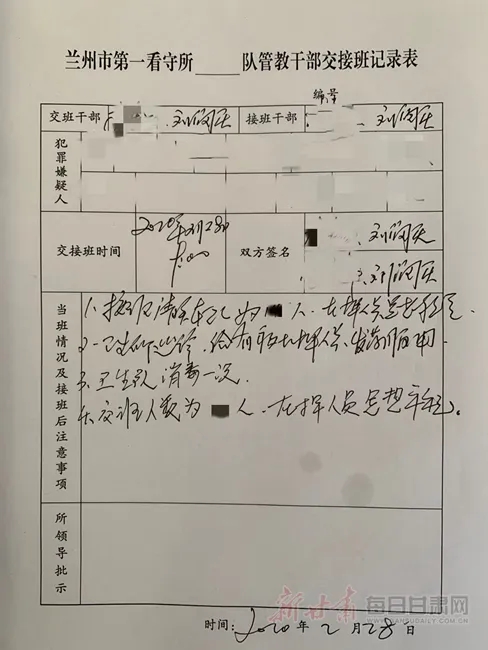 兰州市第一看守所 队管教干部交接班记录表
编号
交班干部 刘闻天 接班干部 刘闻天
犯罪嫌疑人
交接班时间 2020年2月28日 双方签名 刘闻天
刘闻天
当班情况及接班后注意事项
1. 接班清点在押人 人、在押人员思想稳定
2. 卫生所巡诊、给有 在押人员、发药服用
3. 卫生队消毒一次
4. 交班人数为 人、在押人员思想平稳。
所领导批示
时间:2020年2月28日
新甘肃 每日甘肃网
GANSUDAILY.COM.CN